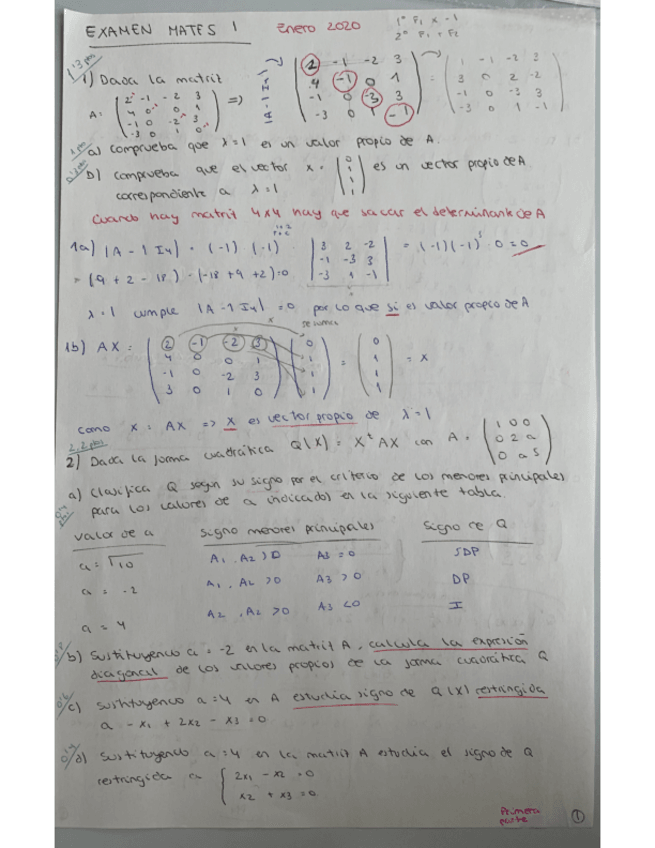 EXAMEN MATES 1 Enero 2020
1º F1 x -1
2º F1 + F2
1) Dada la matriz
A = ( 2 -1 -2 3 ) =>
4 0 0 1
-1 0 -2 3
-3 0 1 0
|A - 1 I4|
2 -1 -2 3
4 -1 0 1
-1 0 -3 3
-3 0 1 -1
1 -1 -2 3
3 0 2 -2
-1 0 -3 3
-3 0 1 -1
a) comprueba que λ=1 es un valor propio de A.
b) comprueba que el vector x = ( 0 1 1 1 ) es un vector propio de A
correspondiente a λ=1
Cuando hay matriz 4x4 hay que sacar el determinante de A
1a) |A - 1 I4| = (-1) (-1)
3 2 -2
-1 -3 3
-3 1 -1
= (-1)(-1)³ · 0 = 0
= (9 + 2 - 18) - (-18 + 9 + 2) = 0
λ=1 cumple |A - 1 I4| = 0 por lo que si es valor propio de A
1b) AX =
2 -1 -2 3
4 0 0 1
-1 0 -2 3
3 0 1 0
( 0 1 1 1 ) = ( 0 1 1 1 ) = x
como x = AX => x es vector propio de λ=1
2) Dada la forma cuadrática Q(X) = Xᵗ AX con A =
1 0 0
0 2 a
0 a 5
a) Clasifica Q según su signo por el criterio de los menores principales
para los valores de a indicados en la siguiente tabla.
valor de a signo menores principales signo de Q
a = √10 A1, A2 >0 A3 = 0 SDP
a = -2 A1, A2 >0 A3 > 0 DP
a = 4 A2, A2 >0 A3 <0 I
b) Sustituyendo a = -2 en la matriz A, calcula la expresión
diagonal de los valores propios de la forma cuadrática Q
c) sustituyendo a=4 en A estudia signo de Q(X) restringida
a -x1 + 2x2 - x3 = 0
d) Sustituyendo a=4 en la matriz A estudia el signo de Q
restringida a { 2x1 - x2 = 0
x2 + x3 = 0
Primera
parte
1